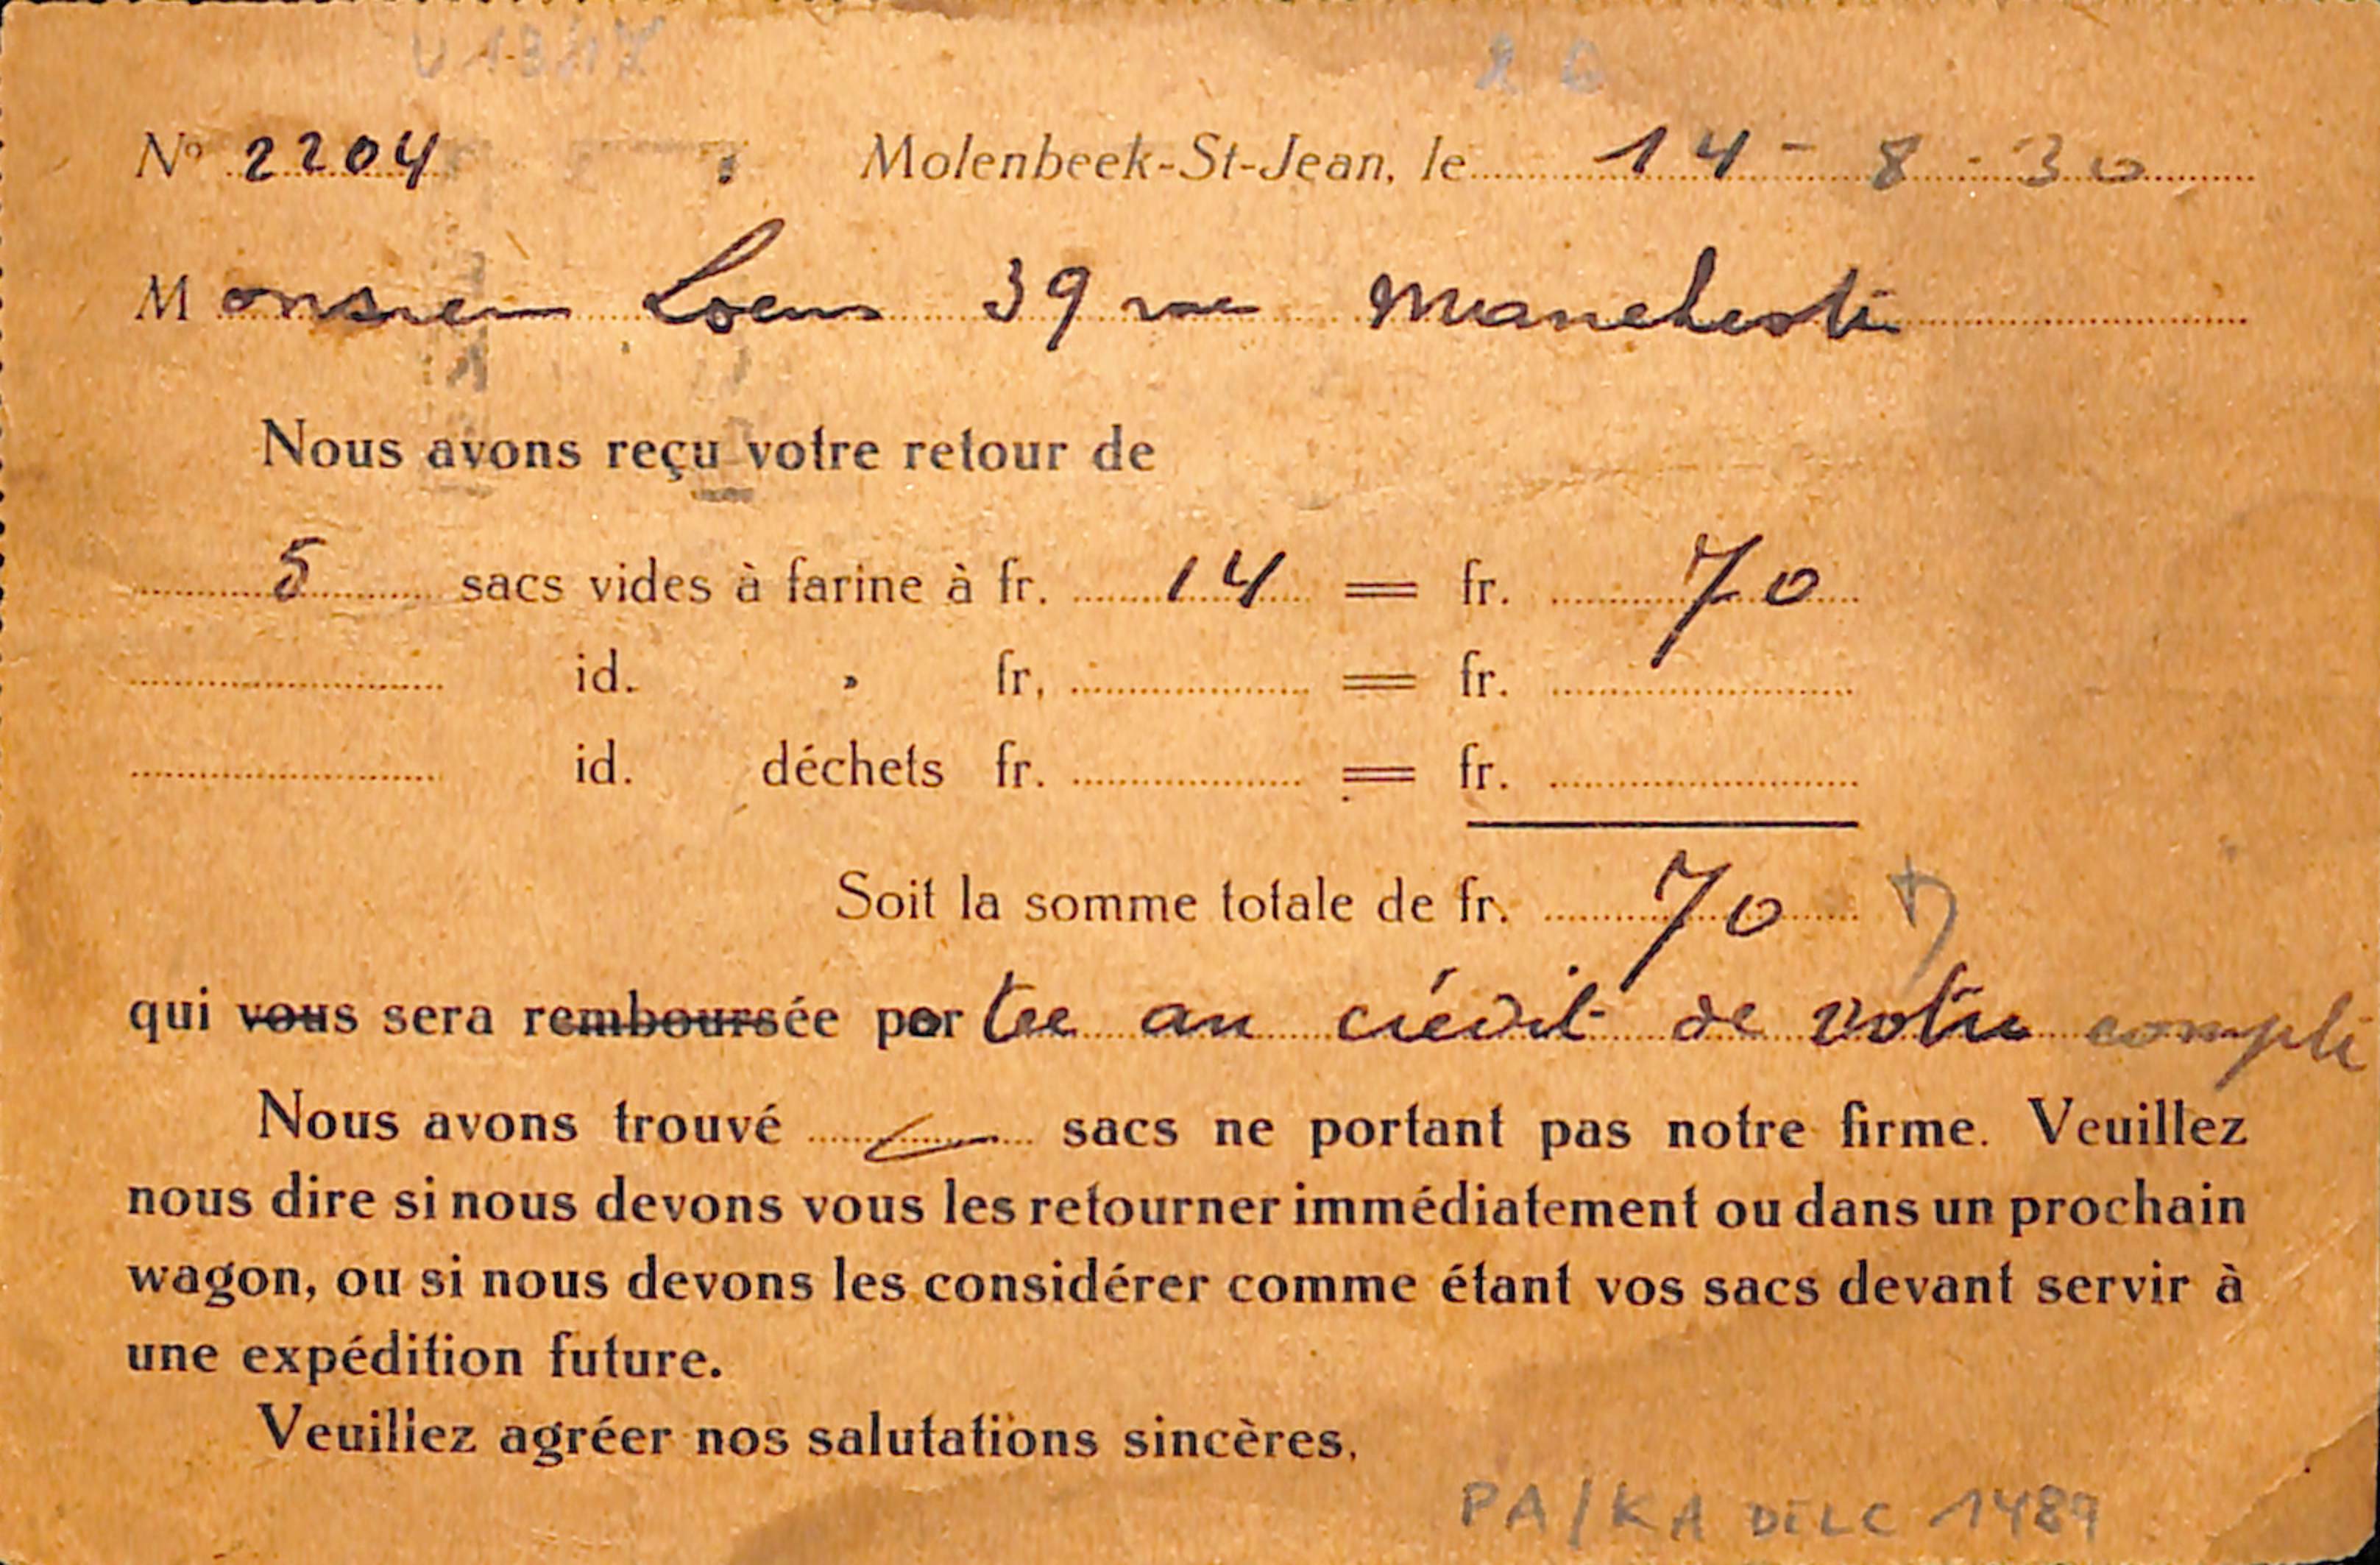 N° 2204 Molenbeek-St-Jean, le 14 - 8 - 30
Monsieur Loens 39 rue Manchester
Nous avons reçu votre retour de
5 sacs vides à farine à fr. 14 = fr. 70
id. » fr. = fr.
id. déchets fr. = fr.
Soit la somme totale de fr. 70
qui vous sera remboursée portee au crédit de votre compte
Nous avons trouvé sacs ne portant pas notre firme. Veuillez
nous dire si nous devons vous les retourner immédiatement ou dans un prochain
wagon, ou si nous devons les considérer comme étant vos sacs devant servir à
une expédition future.
Veuillez agréer nos salutations sincères.
PA/KA DELC 1489